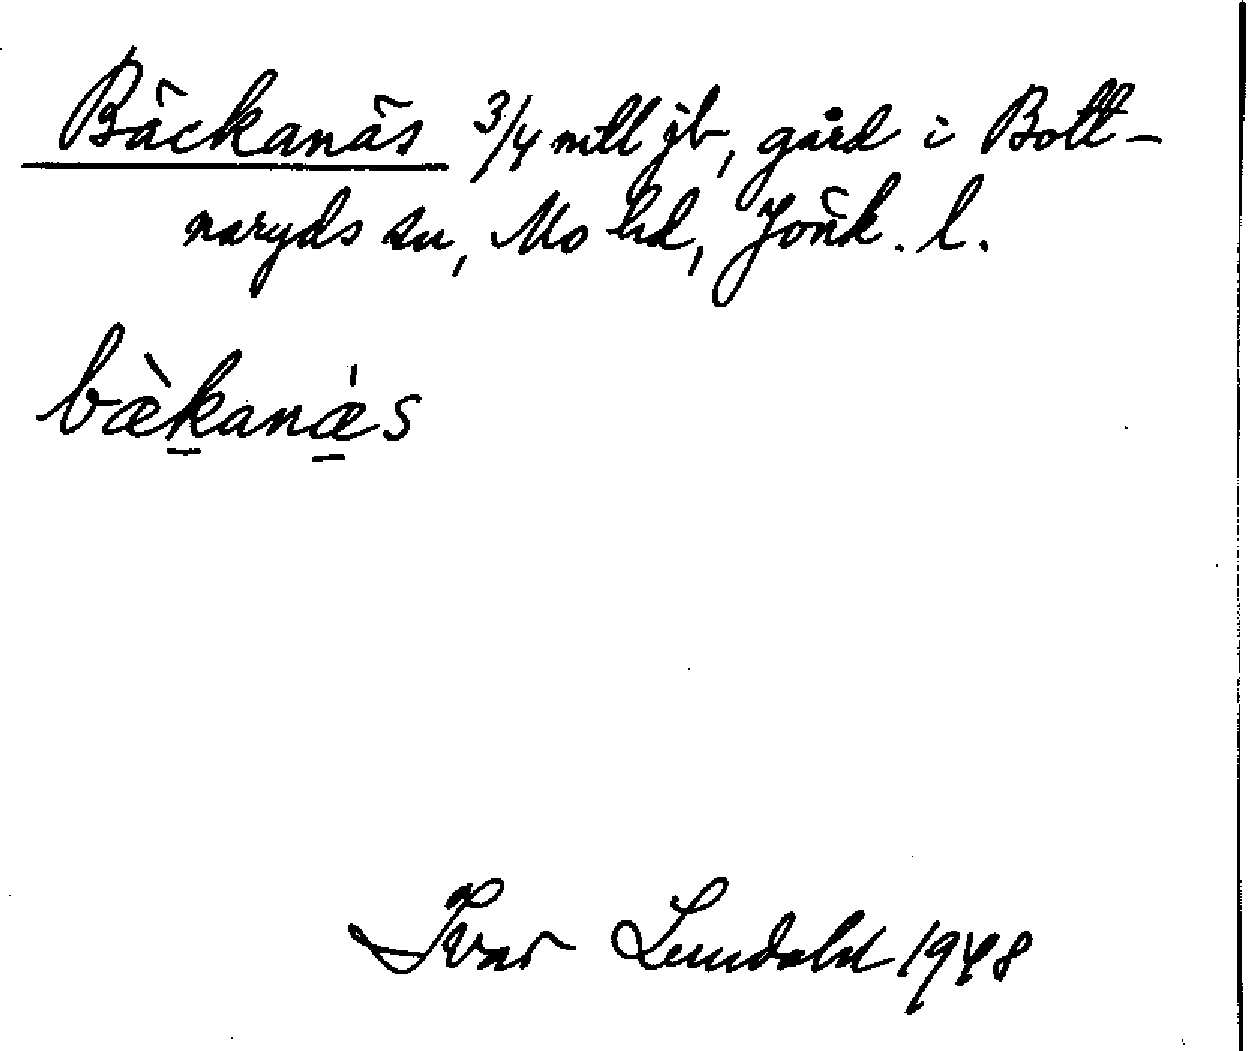 Bäckanäs 3/4 mtl jb, gård i Bott-
naryds sn, Mo hd, Jönk. l.
bæ̀kanæ̍s
Ivar Lundahl 1948